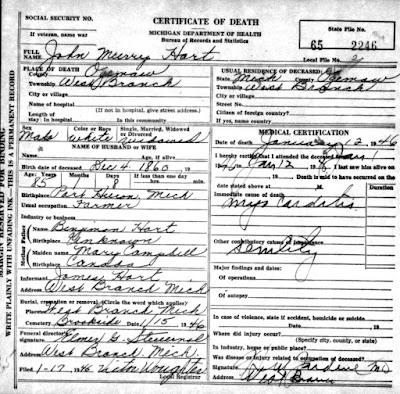 SOCIAL SECURITY NO.
If veteran, name war
CERTIFICATE OF DEATH
MICHIGAN DEPARTMENT OF HEALTH
Bureau of Records and Statistics
State File No.
65 2246
FULL NAME John Murry Hart
Local File No. 2
PLACE OF DEATH
County Ogemaw
Township West Branch
City or village
Name of hospital
(If not in hospital, give street address.)
Length of stay: In hospital In this community
USUAL RESIDENCE OF DECEASED
State Mich County Ogemaw
Township West Branch
City or village
Street No.
Citizen of foreign country?
If yes, name country
Sex Male
Color or Race White
Single, Married, Widowed or Divorced Widowed
NAME OF HUSBAND OR WIFE
Birth date of deceased Dec 4 1860
AGE: Years 85 Months 1 Days 8 If less than one day
hrs. min.
Birthplace Port Huron, Mich
Usual occupation Farmer
Industry or business
Father Name Binjman Hart
Birthplace Unknown
Mother Maiden name Mary Campbell
Birthplace Canada
Informant James Hart
Address West Branch Mich
Burial, cremation or removal? (Circle the word which applies)
Place West Branch Mich
Cemetery Brookside 1/15 1946
Funeral director's signature Elmer G. Steuernol
Address West Branch Mich
Filed 1-17 1946
Local Registrar
MEDICAL CERTIFICATION
Date of death January 12 1946
I hereby certify that I attended the deceased from
1946 to Jan 12 1946 I last saw him alive on
Death is said to have occurred on the date stated above at M.
Immediate cause of death
Myo Cardalis
Due to
Other contributory causes of importance
Senility
Major findings and dates:
Of operations
Of autopsy
In case of violence, state if accident, homicide or suicide
Where did injury occur?
(Specify city, county, or state)
In industry, home or public place?
Was disease or injury related to occupation of deceased?
Signature M.D.
Address West Branch
WRITE PLAINLY WITH UNFADING INK—THIS IS A PERMANENT RECORD